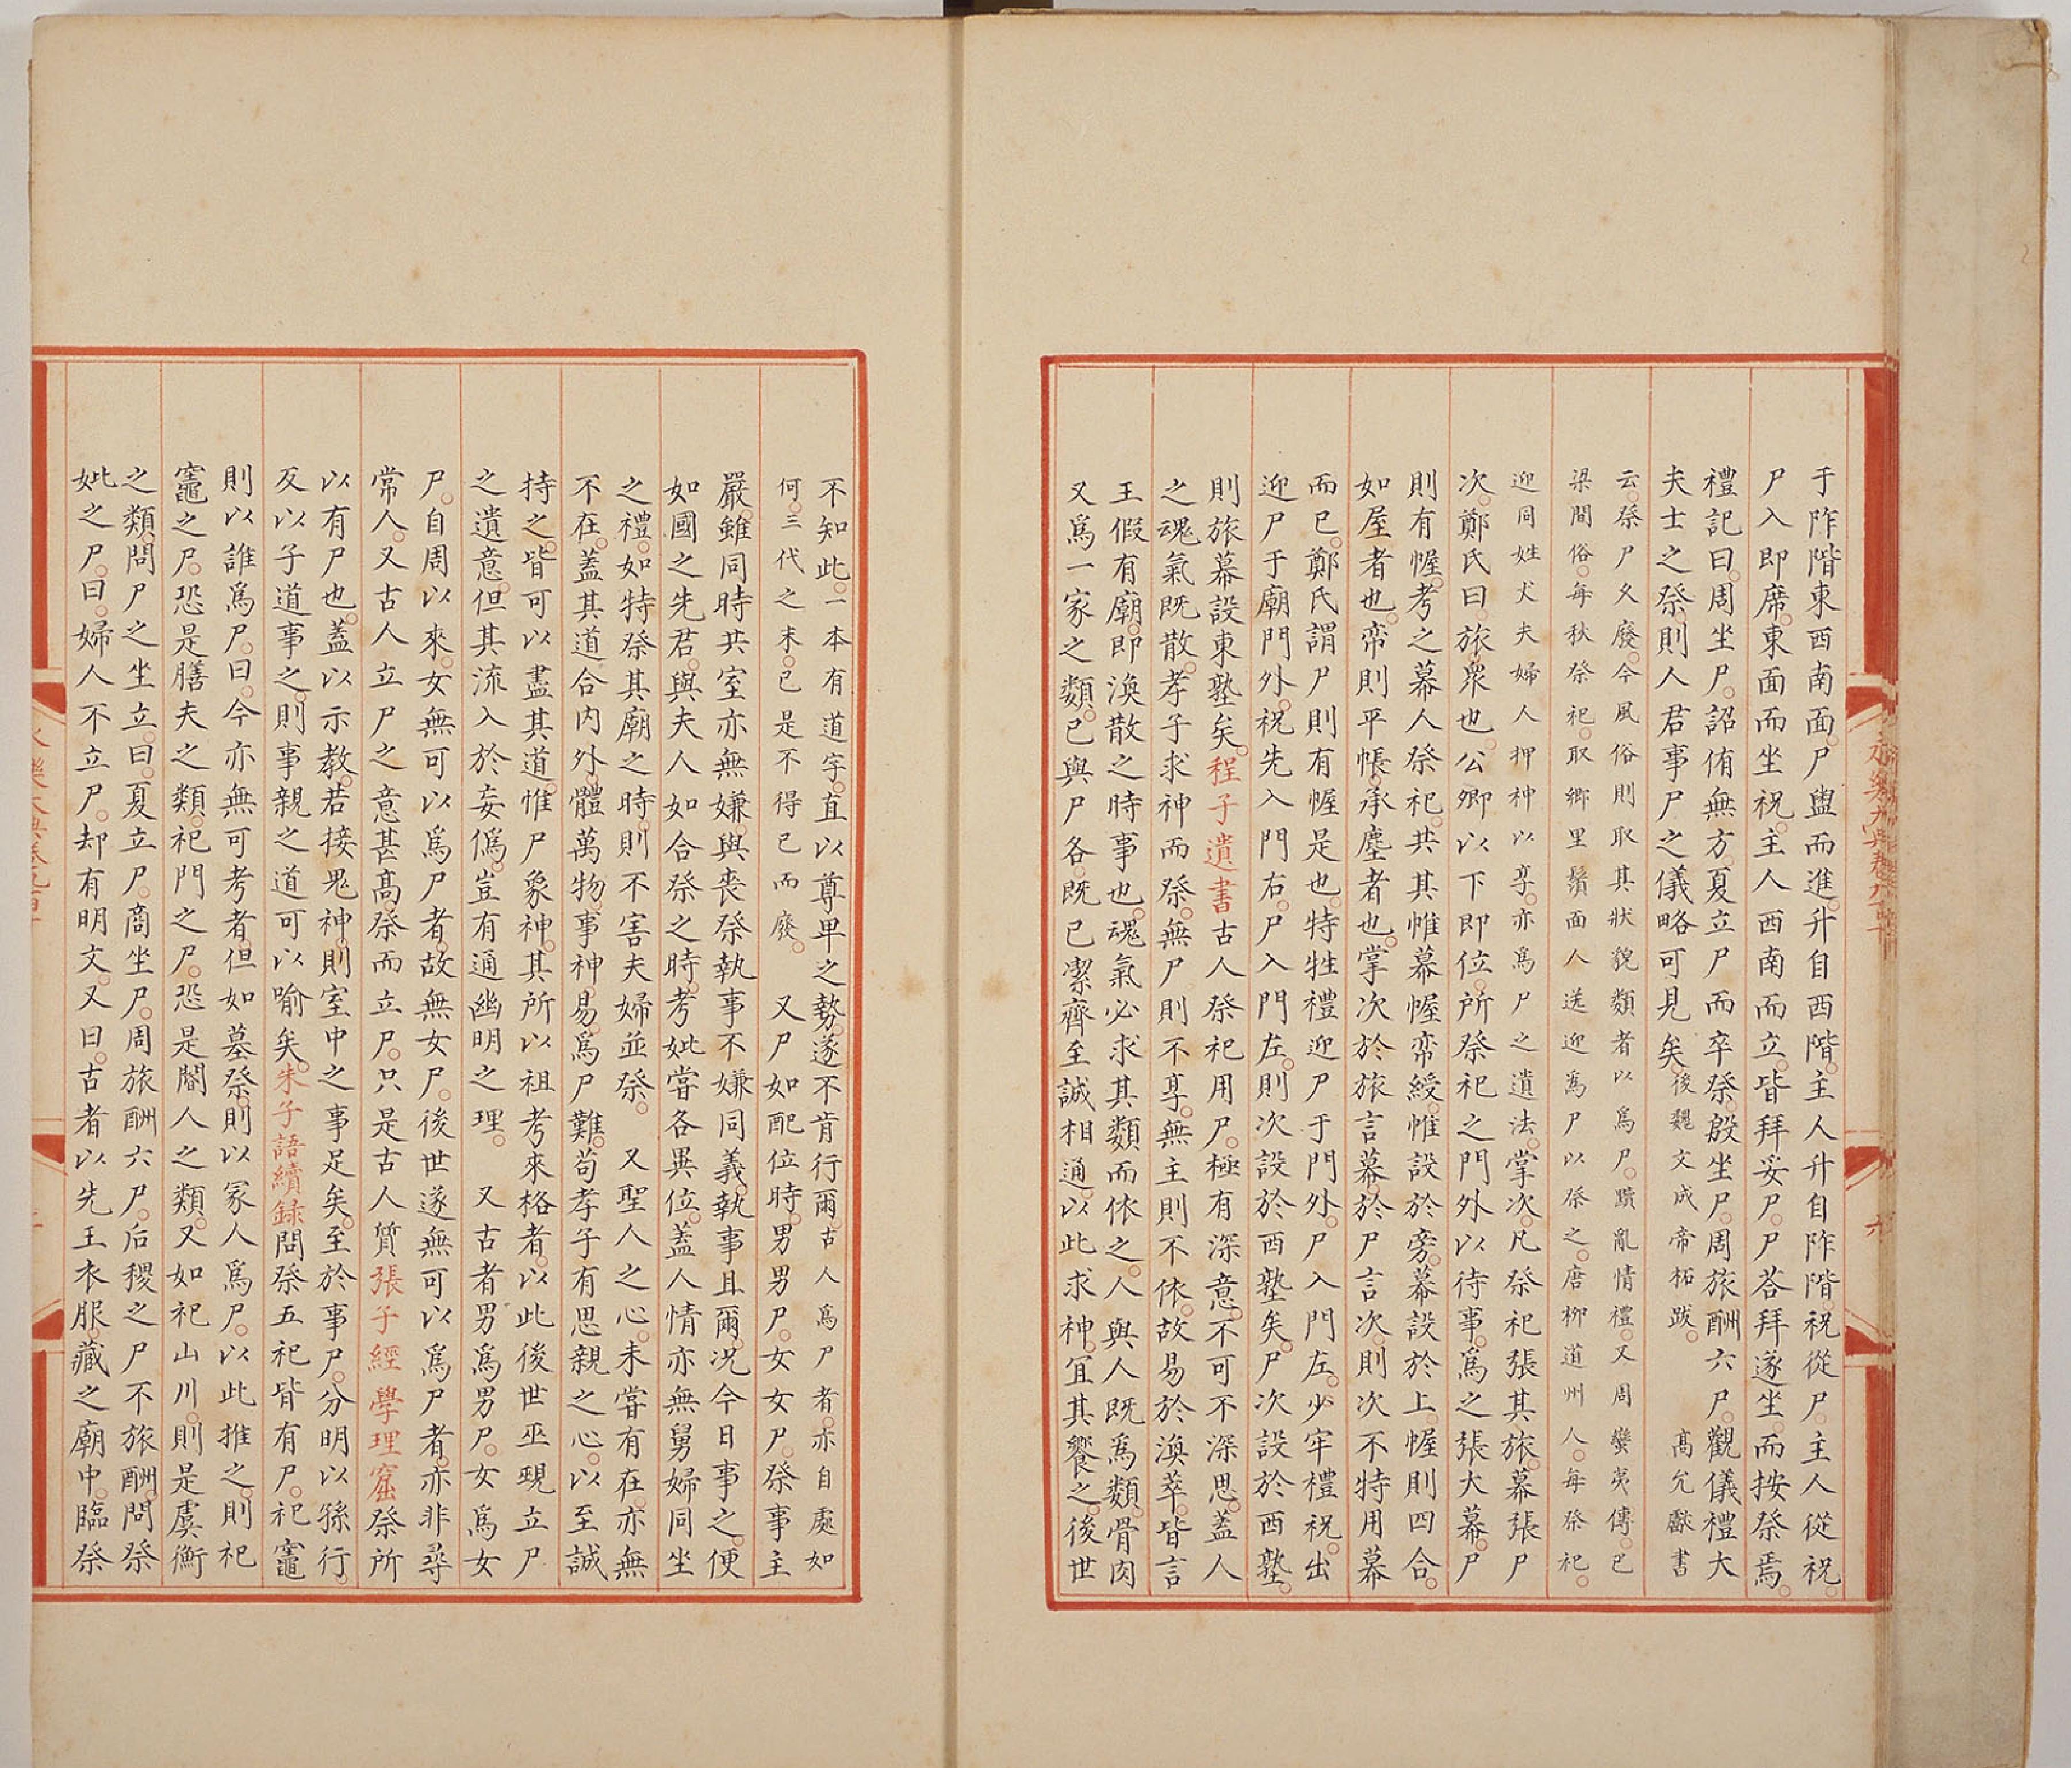 于阼階東西南面。尸盥而進。升自西階。主人升自阼階。祝從尸。主人從祝。
尸入即席。東面而坐祝。主人西南而立。皆拜妥尸。尸荅拜遂坐。而按祭焉。
禮記曰。周坐尸。詔侑無方。夏立尸而卒祭。殷坐尸。周旅酬六尸。觀儀禮大
夫士之祭。則人君事尸之儀略可見矣。後魏文成帝柘跋。高允獻書
云。祭尸久廢。今風俗則取其狀貌類者以爲尸。黷亂情禮。又周蠻夷傳。巴
梁間俗。每秋祭祀。取鄉里鬚面人送迎爲尸以祭之。唐柳道州人。每祭祀。
迎同姓丈夫婦人押神以享。亦爲尸之遺法。掌次。凡祭祀張其旅幕張尸
次。鄭氏曰。旅衆也。公卿以下即位。所祭祀之門外以待事。爲之張大幕。尸
則有幄。考之幕人祭祀。共其帷幕幄帟綬。帷設於旁。幕設於上。幄則四合。
如屋者也。帟則平帳。承塵者也。掌次於旅言幕。於尸言次。則次不特用幕
而已。鄭氏謂尸則有幄是也。特牲禮迎尸于門外。尸入門左。少牢禮祝。出
迎尸于廟門外。祝先入門右。尸入門左。則次設於西塾矣。尸次設於西塾。
則旅幕設東塾矣。程子遺書古人祭祀用尸。極有深意。不可不深思。蓋人
之魂氣既散。孝子求神而祭。無尸則不享。無主則不依。故易於渙萃。皆言
王假有廟。即渙散之時事也。魂氣必求其類而依之。人與人既爲類。骨肉
又爲一家之類。已與尸各。既已潔齊。至誠相通。以此求神。宜其饗之。後世
不知此。一本有道字。直以尊卑之勢。遂不肯行爾。古人爲尸者。亦自處如
何。三代之末。已是不得已而廢。　又尸如配位時。男男尸。女女尸。祭事主
嚴。雖同時共室亦無嫌。與喪祭執事不嫌同義。執事且爾。況今日事之。便
如國之先君。與夫人如合祭之時。考妣當各異位。蓋人情亦無舅婦同坐
之禮。如特祭其廟之時。則不害夫婦並祭。　又聖人之心。未嘗有在。亦無
不在。蓋其道合内外。體萬物。事神易。爲尸難。苟孝子有思親之心。以至誠
持之。皆可以盡其道。惟尸象神。其所以祖考來格者。以此後世巫覡立尸
之遺意。但其流入於妄僞。豈有通幽明之理。　又古者男爲男尸。女爲女
尸。自周以來。女無可以爲尸者。故無女尸。後世遂無可以爲尸者。亦非尋
常人。又古人立尸之意甚高。祭而立尸。只是古人質張子經學理窟祭所
以有尸也。蓋以示教。若接鬼神。則室中之事足矣。至於事尸。分明以孫行。
反以子道事之。則事親之道可以喻矣。朱子語續録問祭五祀皆有尸。祀竈
則以誰爲尸。曰。今亦無可考者。但如墓祭。則以冢人爲尸。以此推之。則祀
竈之尸。恐是膳夫之類。祀門之尸。恐是閽人之類。又如祀山川。則是虞衡
之類。問尸之坐立。曰。夏立尸。商坐尸。周旅酬六尸。后稷之尸不旅酬。問祭
妣之尸。曰。婦人不立尸。却有明文。又曰。古者以先王衣服。藏之廟中。臨祭